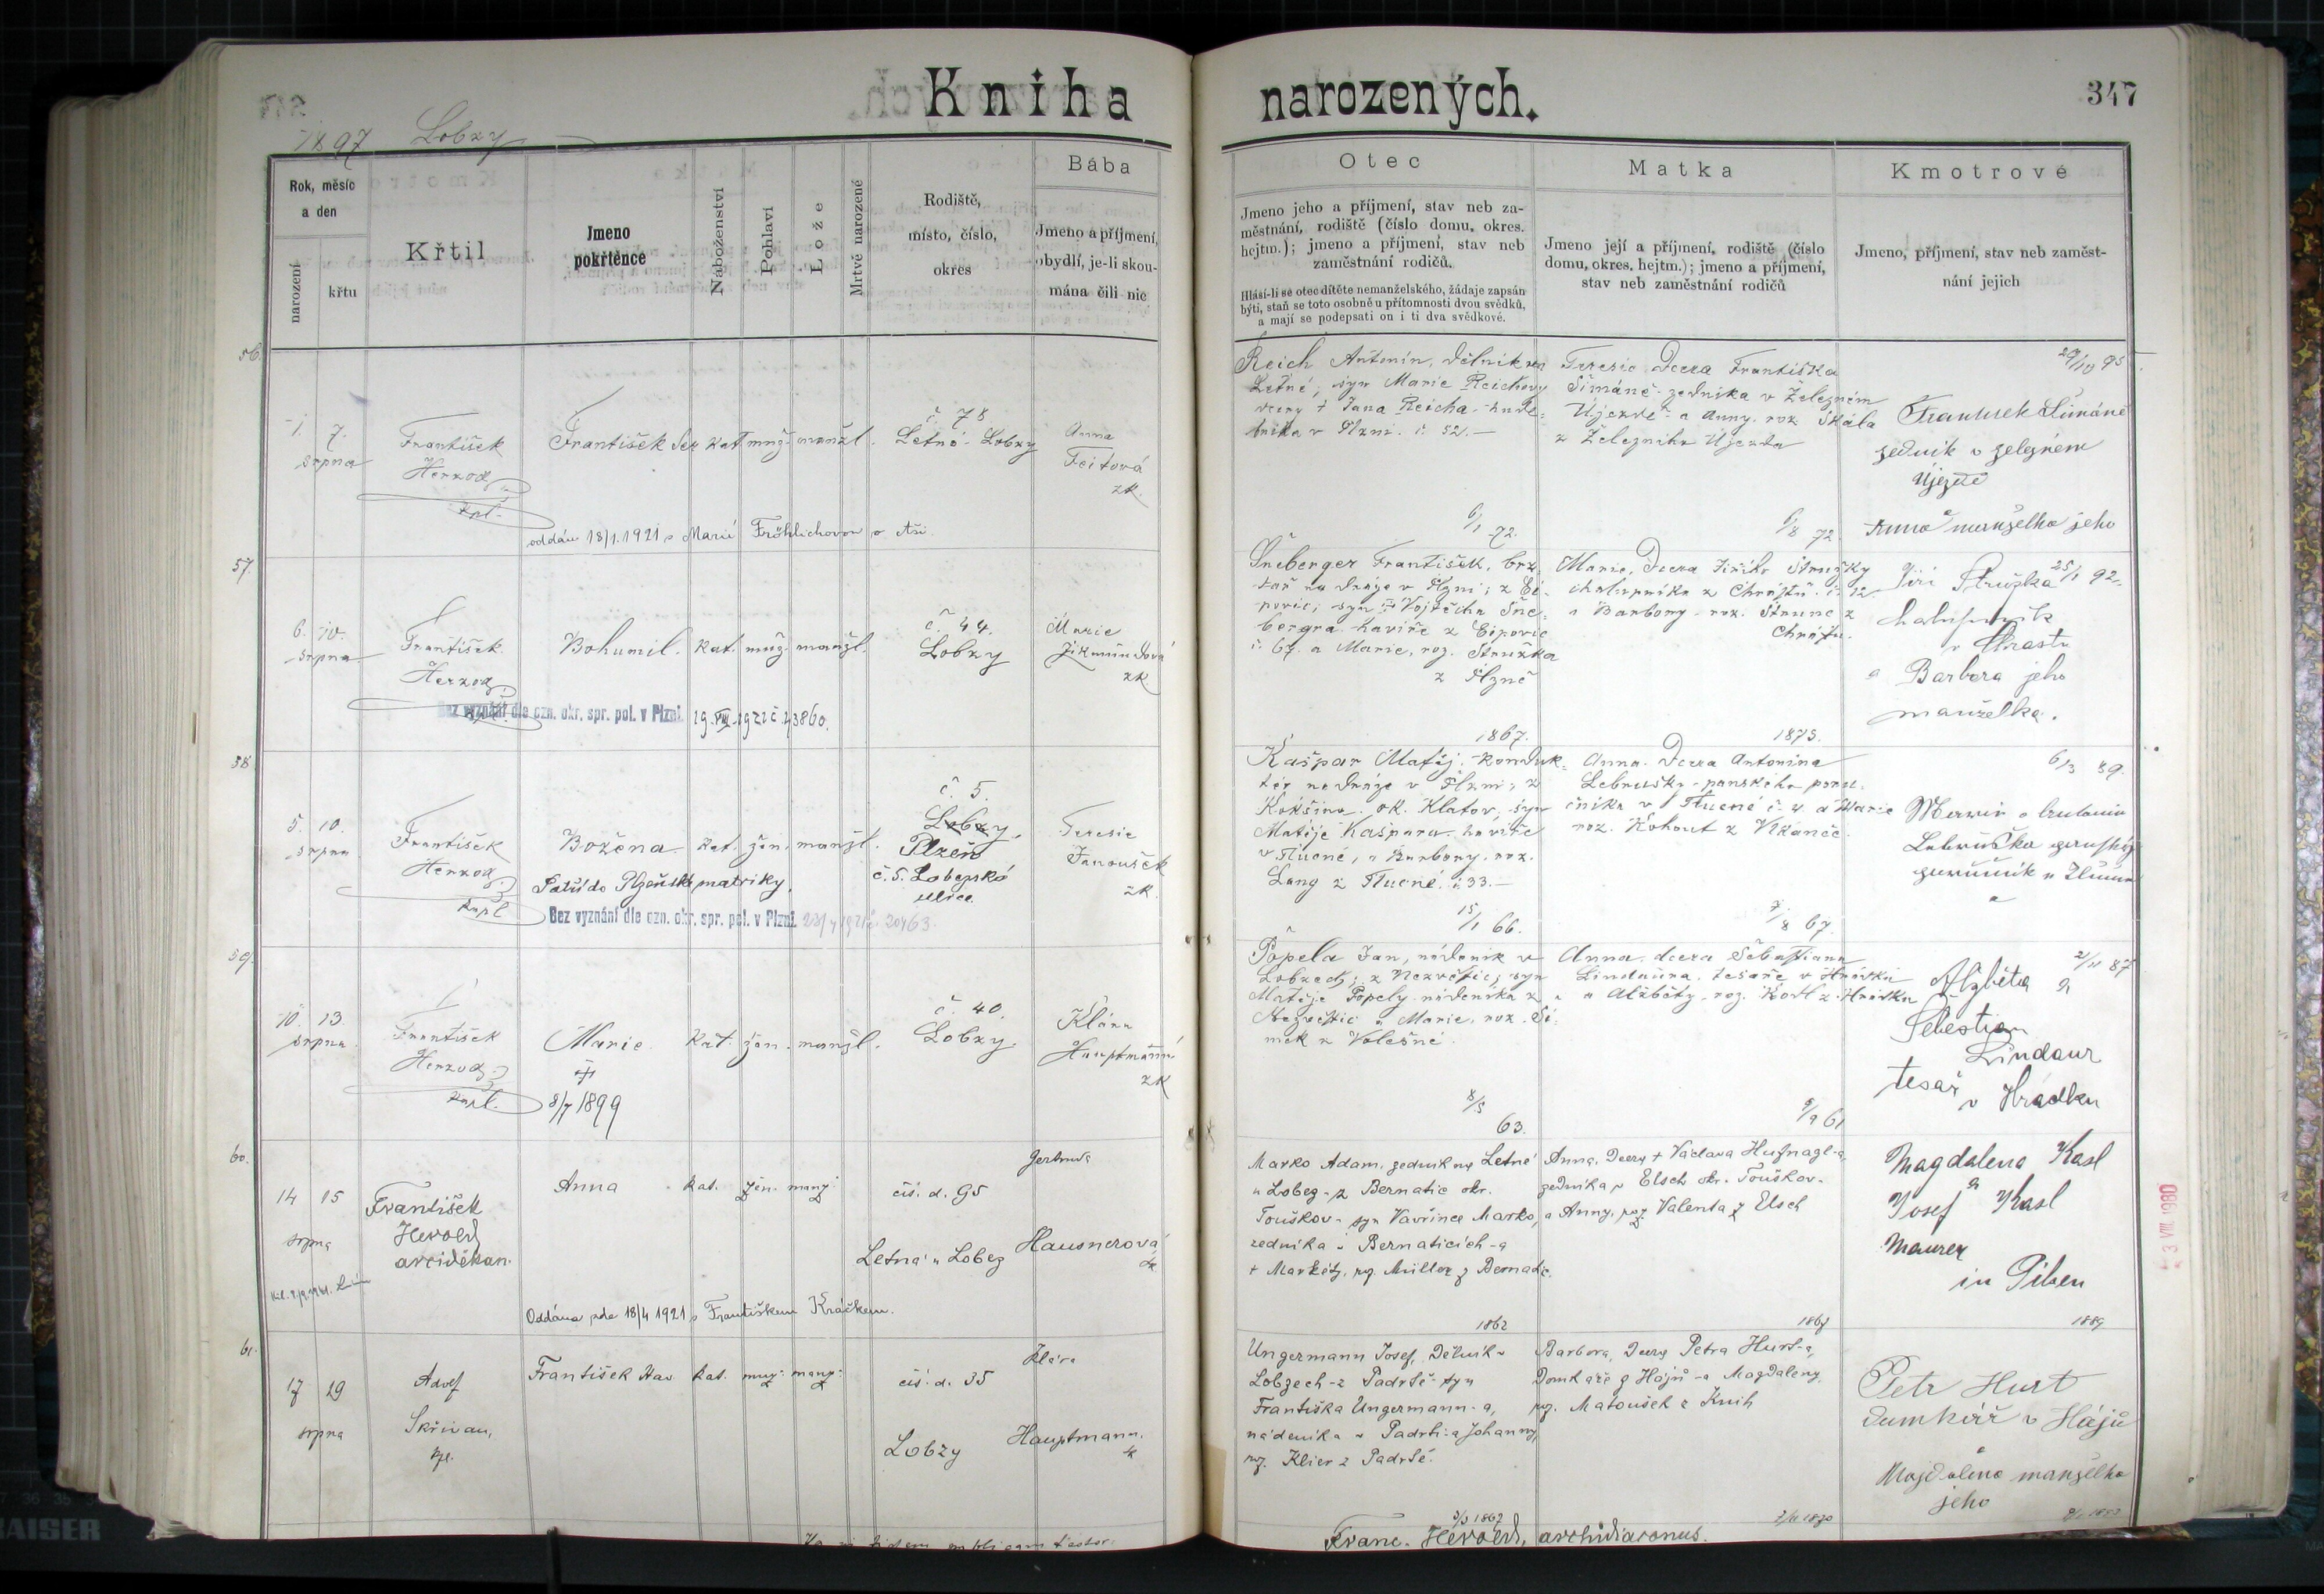 Kniha narozených.
347
1897 Lobzy
Rok, měsíc
a den
narození
křtu
Křtil
Jmeno
pokřtěnce
Náboženství
Pohlaví
Lože
Mrtvě narozené
Rodiště,
místo, číslo,
okres
Bába
Jmeno a příjmení,
obydlí, je-li skou-
mána čili nic
Otec
Jmeno jeho a příjmení, stav neb za-
městnání, rodiště (číslo domu, okres.
hejtm.); jmeno a příjmení, stav neb
zaměstnání rodičů.
Hlásí-li se otec dítěte nemanželského, žádaje zapsán
býti, staň se toto osobně u přítomnosti dvou svědků,
a mají se podepsati on i ti dva svědkové.
Matka
Jmeno její a příjmení, rodiště (číslo
domu, okres. hejtm.); jmeno a příjmení,
stav neb zaměstnání rodičů
Kmotrové
Jmeno, příjmení, stav neb zaměst-
nání jejich
56.
1. 7.
srpna
František
Herzog
kpl.
František Ser. kat. muž. manžl.
č. 78
Letná - Lobzy
Anna
Feitová
zk.
oddán 18/1. 1921 s Marií Fröhlichovou v Aši
Reich Antonín, dělník na
Letné, syn Marie Reichovy
dcery † Jana Reicha - hude-
bníka v Plzni. č. 52. —
6/1 72.
Terezie Dcera Františka
Šimáně - zedníka v Železném
Újezdě - a Anny, roz. Skála
z Železného Újezda
6/8 72
29/10 95
František Šimáně
zedník v Železném
Újezdě
a
Anna manželka jeho
57.
6. 10.
srpna
František
Herzog
Bohumil. kat. muž. manžl.
č. 44.
Lobzy
Marie
Zikmundová
zk
Bez vyznání dle ozn. okr. spr. pol. v Plzni. 19. VIII. 1921 č. 43860.
Šneberger František, brz-
dař na dráze v Plzni; z Ei-
povic; syn Vojtěcha Šne-
bergra. havíře z Eipovic
č. 67. a Marie, roz. Stružka
z Plzně
1867.
Marie, Dcera Jiřího Stružky
chalupníka z Chrástu č. 12
a Barbory - roz. Strunc z
Chrástu.
1875.
25/1 92.
Jiří Stružka
chalupník
v Chrástu
a Barbora jeho
manželka.
58.
5. 10.
srpna
František
Herzog
kapl
Božena kat. žen. manžl.
č. 5.
Lobzy.
Plzeň
č. 5. Lobezská
ulice.
Terezie
Janoušek
zk.
Patří do Plzeňské matriky.
Bez vyznání dle ozn. okr. spr. pol. v Plzni.
Kašpar Matěj - konduk-
tér na dráze v Plzni; z
Kokšína. ok. Klatov, syn
Matěje Kašpara - havíře
v Tlucné, a Barbory. roz.
Lang z Tlucné. č. 33. —
15/1 66.
Anna - Dcera Antonína
Lebruška - panského poru-
čníka v Tlucné č. 4. a Marie
roz. Kohout z Vkanče.
7/8 67.
6/3 89.
59.
10. 13.
srpna
František
Herzog
kapl.
Marie kat. žen. manžl.
†
8/7 1899
č. 40.
Lobzy.
Klára
Hauptmann
zk
Popela Jan, nádeník v
Lobzech; z Nezvěstic; syn
Matěje Popely - nádeníka z
Nezvěstic a Marie, roz. Ši-
mek z Volešné.
8/5
63.
Anna - dcera Šebastiana
Lindaura. tesaře v Hrádku
a Alžběty - roz. Kodl z Hrádku
9/9 61
2/11 87
Alžběta a
Šebestian
Lindaur
tesař
v Hrádku
60.
14 15
srpna
František
Herold
arciděkan.
Anna kat. žen. manž.
čís. d. 95
Letná u Lobez
Gertruda
Hausnerová
zk
Oddána dne 18/4 1921 s Františkem Kráčkem.
Marko Adam. zedník na Letné
u Lobez - z Bernatic okr.
Touškov - syn Vavřince Marko,
zedníka v Bernaticích - a
† Markéty, roz. Müller z Bernatic.
1862
Anna, Dcery † Václava Hufnagl-a,
zedníka v Elsch okr. Touškov -
a Anny, roz. Valenta z Elsch
Magdalena Kasl
a
Josef Kasl
Maurer
in Pilsen
1889
61.
17 29
srpna
Adolf
Skřivan,
kpl.
František Vav kat. muž. manž.
čís. d. 35
Lobzy
Klára
Hauptmann.
zk
Ungermann Josef, Dělník v
Lobzech - z Padrtě - syn
Františka Ungermann-a,
nádeníka v Padrti - a Johanny,
roz. Klier z Padrtě.
Barbora, Dcery Petra Hurt-a,
Domkáře z Hájů - a Magdaleny,
roz. Matoušek z Knih
Petr Hurt
domkář v Hájů
a
Magdalena manželka
jeho
Franc. Herold, archidiaconus.
3 VIII. 1980
KAISER